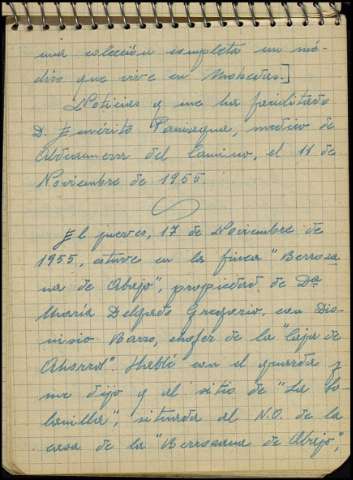 una colección completa un mé-
dico que vive en Mohedas.]
Noticias q me ha facilitado
D. Emérito Paniagua, médico de
Aldeanueva del Camino, el 11 de
Noviembre de 1955
El jueves, 17 de Noviembre de
1955, estuve en la finca "Berroza-
na de Abajo", propiedad de Dª
María Delgado Gregorio, con Dio-
nisio Bazo, chofer de la "Caja de
Ahorros". Hablé con el guarda y
me dijo q al sitio de "La
situada al N.O. de la
casa de la "Berrozana de Abajo",